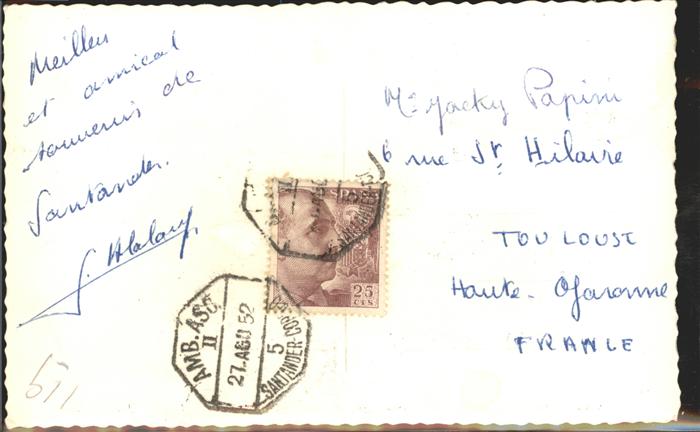 Meilleur
et amical
souvenir de
Santander.
Mr Jacky Papini
6 rue St Hilaire
TOULOUSE
Haute-Garonne
FRANCE
25
CTS
AMB. ASC
II
27. AGO 52
5
SANTANDER-COR